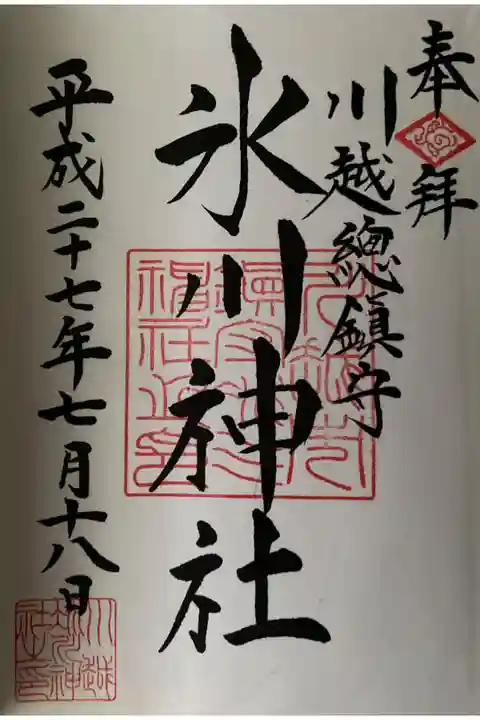 奉拝
川越總鎮守
氷川神社
平成二十七年七月十八日